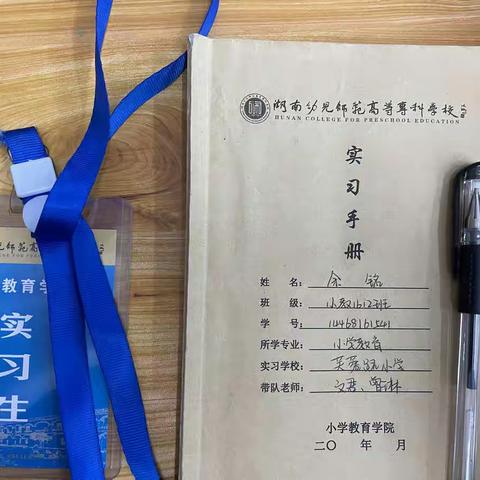 湖南幼儿师范高等专科学校
HUNAN COLLEGE FOR PRESCHOOL EDUCATION
实习手册
姓 名：余 铭
班 级：小教1612班
学 号：
所学专业：小学教育
实习学校：芙蓉路小学
带队老师：文君、曾林
小学教育学院
二〇 年 月
儿师范高
教育学
实
习
生